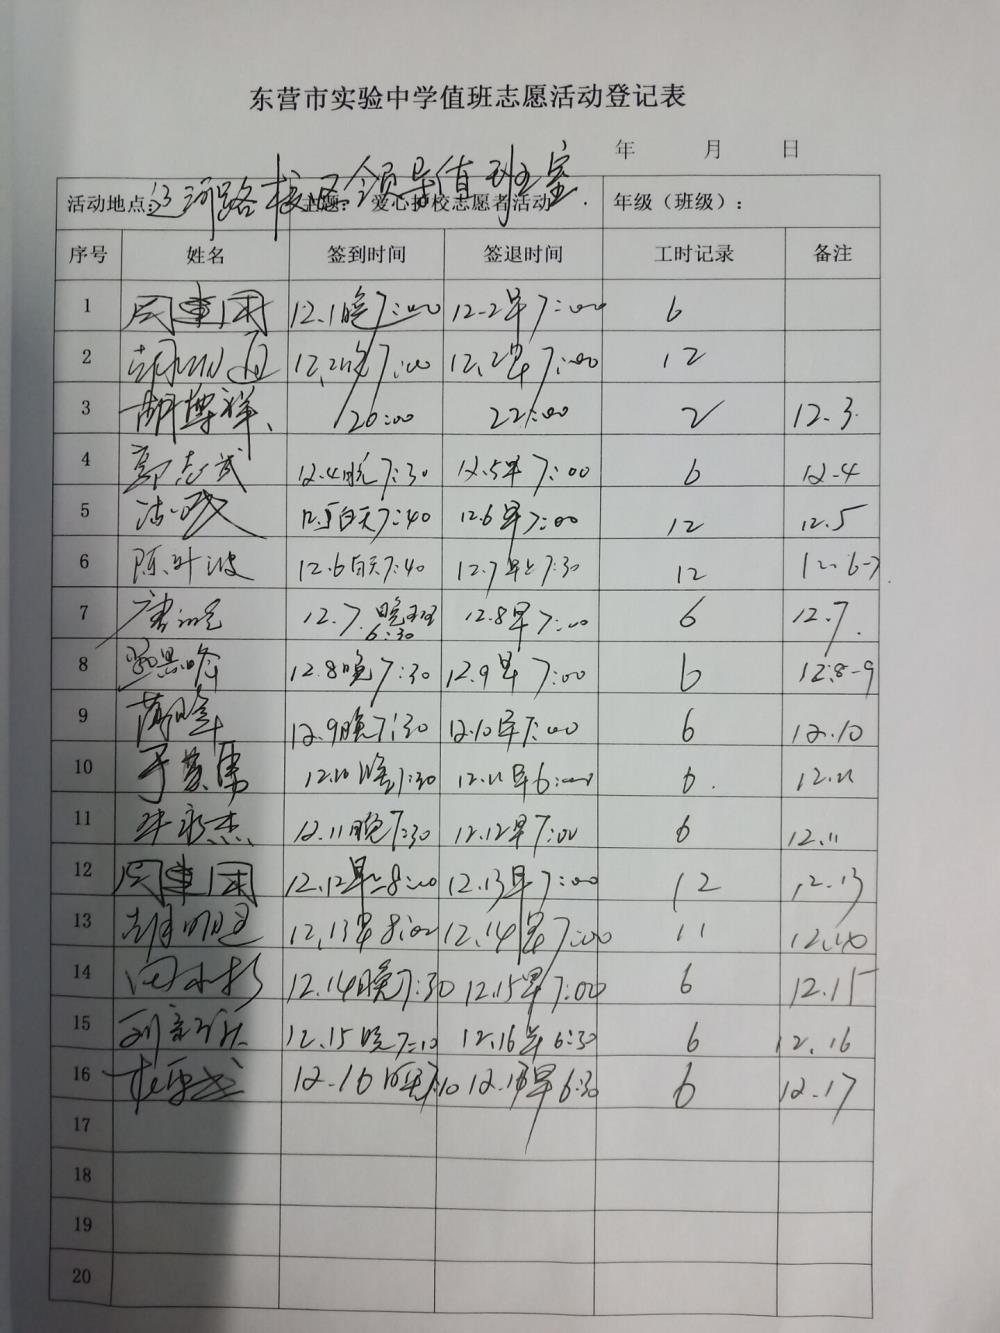 东营市实验中学值班志愿活动登记表
年 月 日
活动地点: 辽河路校区领导值班室 主题: 爱心护校志愿者活动 年级（班级）:
序号 姓名 签到时间 签退时间 工时记录 备注
1 12.1晚7:00 12.2早7:00 6
2 12.2晚7:00 12.2早7:00 12
3 胡博祥 20:00 22:00 2 12.3
4 郭志武 12.4晚7:30 12.5早7:00 6 12.4
5 12.5白天7:40 12.6早7:00 12 12.5
6 陈叶波 12.6白天7:40 12.7早上7:30 12 12.6-7
7 12.7.晚班6:30 12.8早7:00 6 12.7.
8 12.8晚7:30 12.9早7:00 6 12.8-9
9 12.9晚7:30 12.10早7:00 6 12.10
10 12.10晚7:30 12.11早6:00 6. 12.11
11 永杰 12.11晚7:30 12.12早7:00 6 12.11
12 12.12早上8:00 12.13早7:00 12 12.13
13 12.13早8:00 12.14早7:00 11
14 12.14晚7:30 12.15早7:00 6 12.15
15 12.15晚7:10 12.16早6:30 6 12.16
16 12.16 早6:30 6 12.17
17
18
19
20